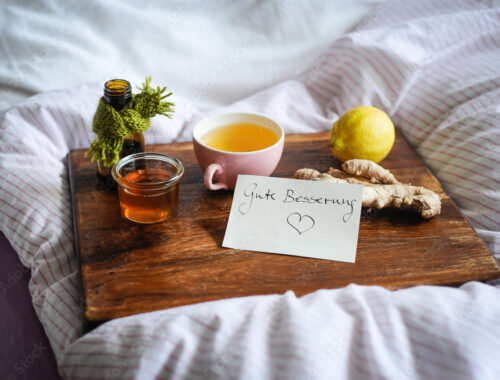 Gute Besserung